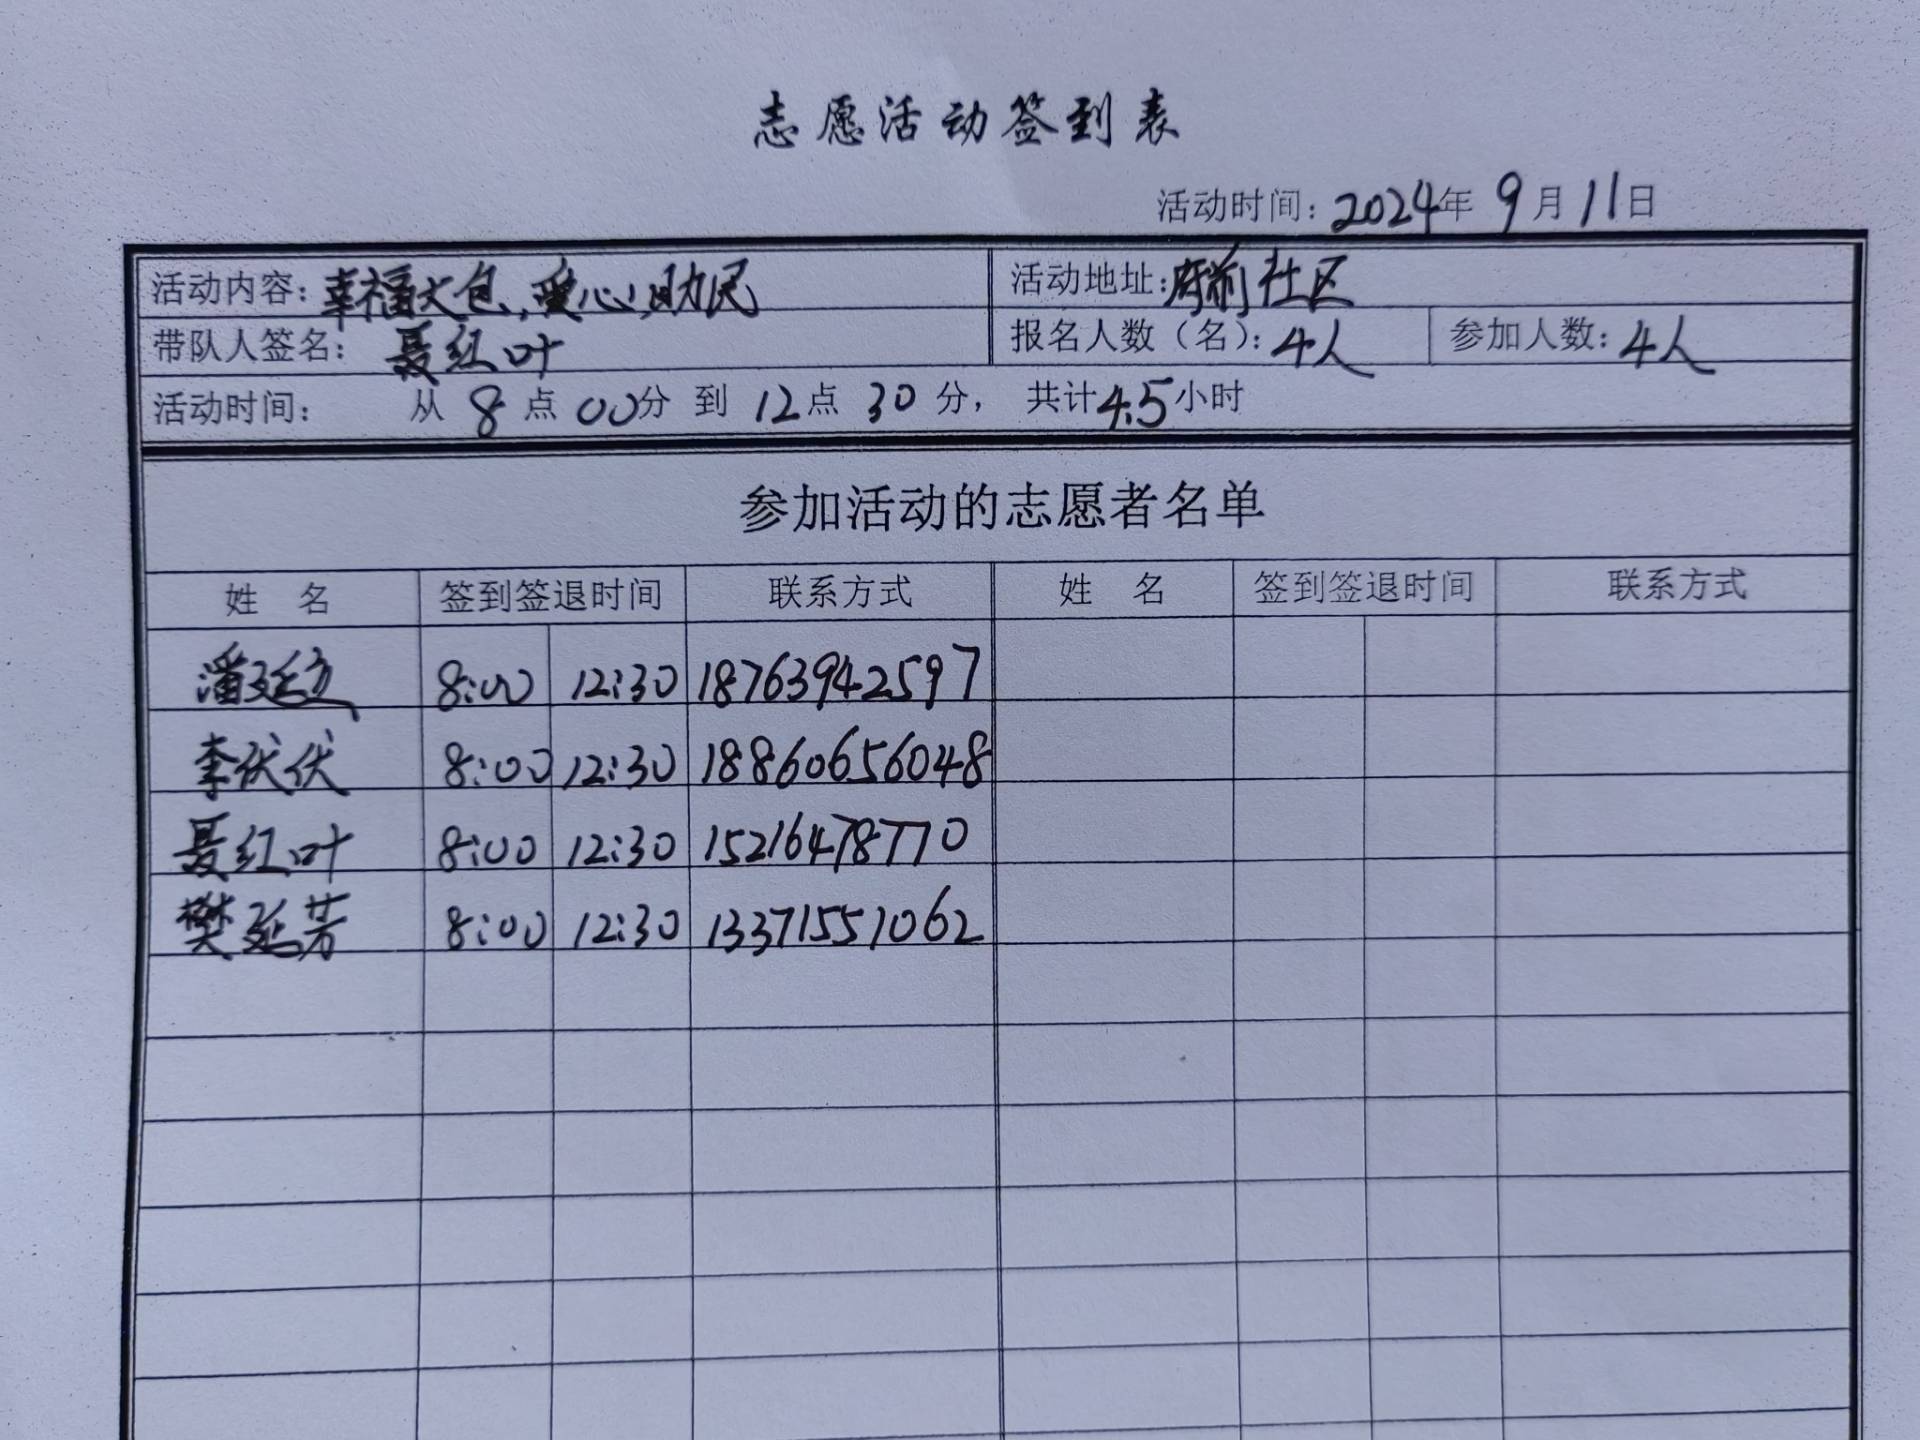 志愿活动签到表
活动时间：2024年 9月11日
活动内容：幸福大包，爱心助民 活动地址：府前社区
带队人签名： 聂红叶 报名人数（名）：4人 参加人数：4人
活动时间： 从 8 点 00分 到 12点 30 分， 共计4.5小时
参加活动的志愿者名单
姓 名 签到签退时间 联系方式 姓 名 签到签退时间 联系方式
潘廷立 8:00 12:30 18763942597
李伏伏 8:00 12:30 18860656048
聂红叶 8:00 12:30 15216478770
樊延芳 8:00 12:30 13371551062